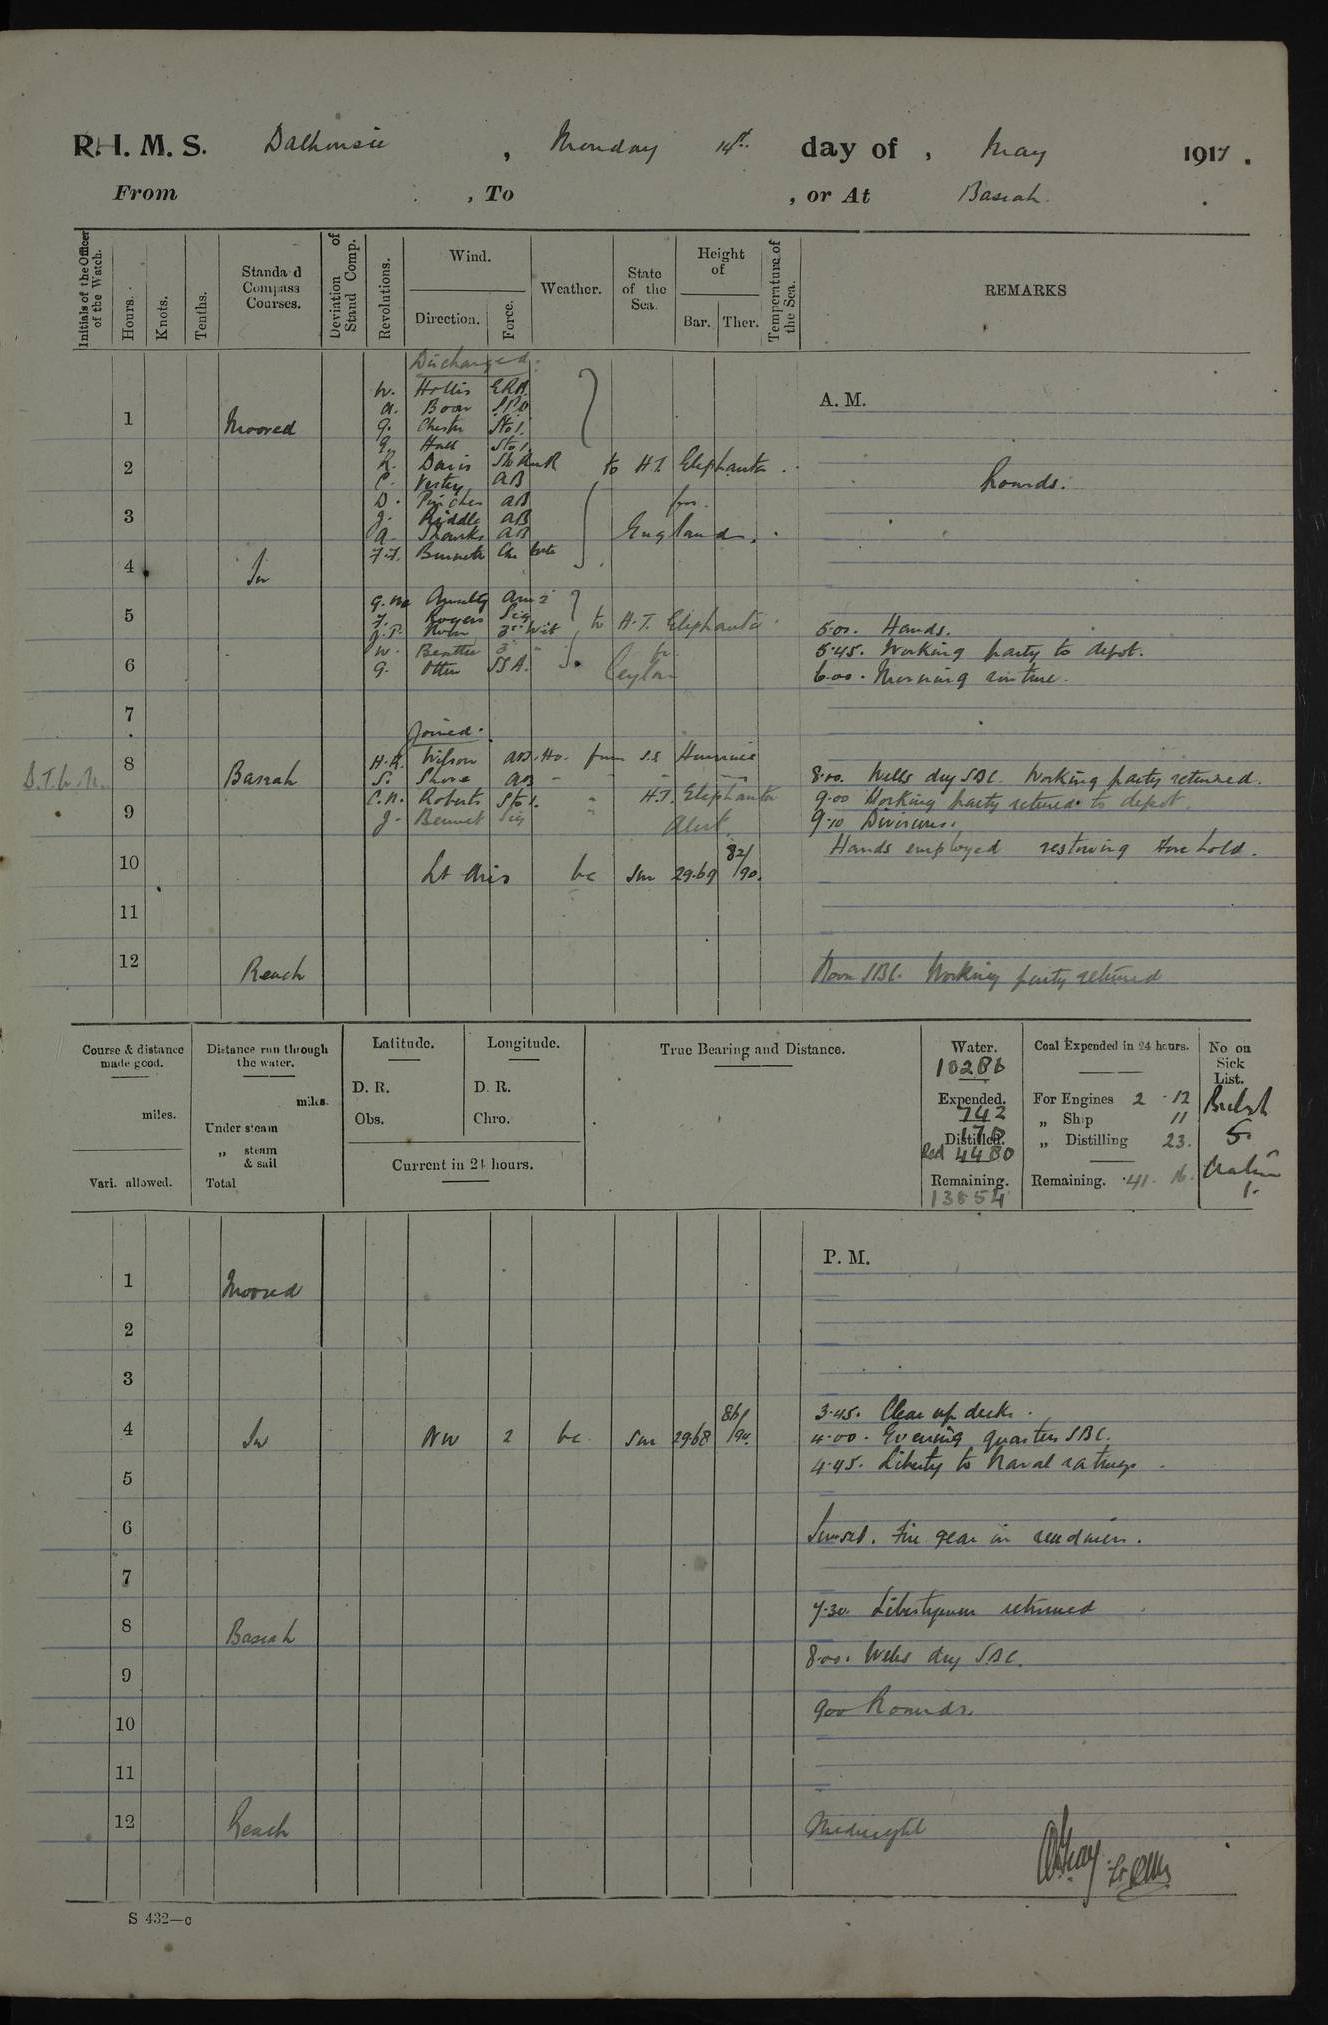 R. I. M. S. Dalhousie , Monday 14th day of , May 1917 .
From , To , or At Basrah.
Initials of the Officer of the Watch.
Hours.
Knots.
Tenths.
Standard Compass Courses.
Deviation of Stand Comp.
Revolutions.
Wind.
Direction.
Force.
Weather.
State of the Sea.
Height of
Bar.
Ther.
Temperature of the Sea.
REMARKS
Discharged.
A. M.
W. Hollis ERA
a. Boar SPO
1 Moored
G. Chester Sto 1.
G. Hall Sto 1.
2
K. Davis
to H.T. Elephanta
C. Vesty AB
Rounds.
D. Pinches AB
for
3
J. Riddle AB
England.
a. AB
4 In
F.F. Bennett
5
G. Sig
J. Rogers
to H.T. Elephanta
5.00. Hands.
W. Beattie
for
5.45. Working party to depot.
6
G. Otten SSA.
Ceylon
6.00. Morning routine.
7
Joined.
H.R. Wilson AB. Ho. from S.S
8 Basrah
S. Shore AB
8.00. Wells dry SBC. Working party returned.
C.N. Roberts Sto 1. " H.T. Elephanta
9.00 Working party returned to depot.
9
J. Bennet Sig " Alert.
9.10 Divisions.
Hands employed restowing store hold.
10 Lt Airs bc Sm 29.69 82/90.
11
12 Reach
Noon SBC. Working party returned
Course & distance made good.
miles.
Vari. allowed.
Distance run through the water.
miles.
Under steam
„ steam & sail
Total
Latitude.
D. R.
Obs.
Longitude.
D. R.
Chro.
Current in 24 hours.
True Bearing and Distance.
Water.
10286
Expended.
742
Distilled.
Recd 4480
Remaining.
13854
Coal Expended in 24 hours.
For Engines 2 . 12
„ Ship 11
„ Distilling 23.
Remaining. 41. 16.
No on Sick List.
British
5.
1.
P. M.
1 Moored
2
3
3.45. Clear up decks.
4 In NW 2 bc Sm 29.68 86/94.
4.00. Evening quarters SBC.
4.45. Liberty to Naval ratings.
5
6
Sunset. Fire gear in readiness.
7
7.30. Libertymen returned
8 Basrah
8.00. Wells dry SBC.
9
9.00 Rounds.
10
11
12 Reach
Midnight
S 432—c